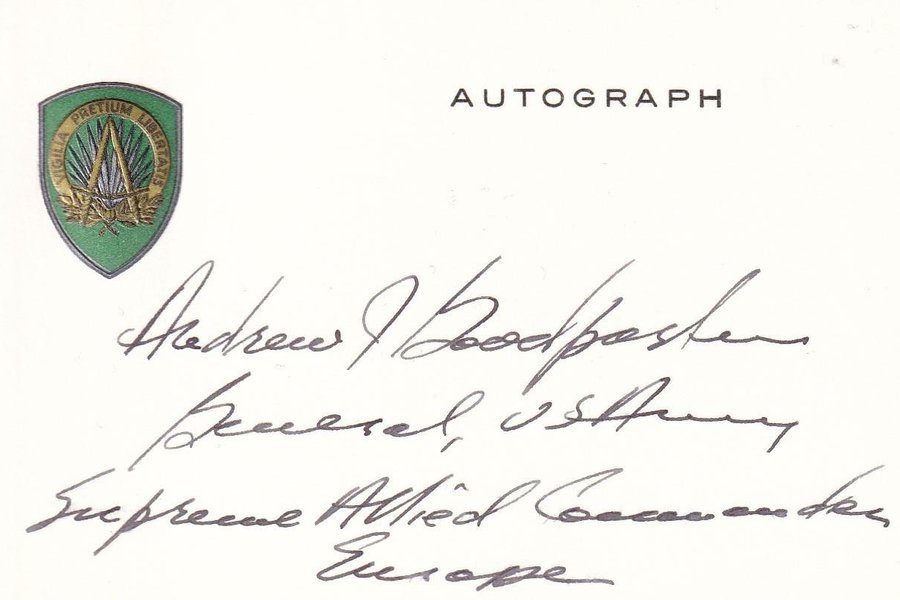 AUTOGRAPH
VIGILIA PRETIUM LIBERTATIS
Andrew J Goodpaster
General, US Army
Supreme Allied Commander
Europe